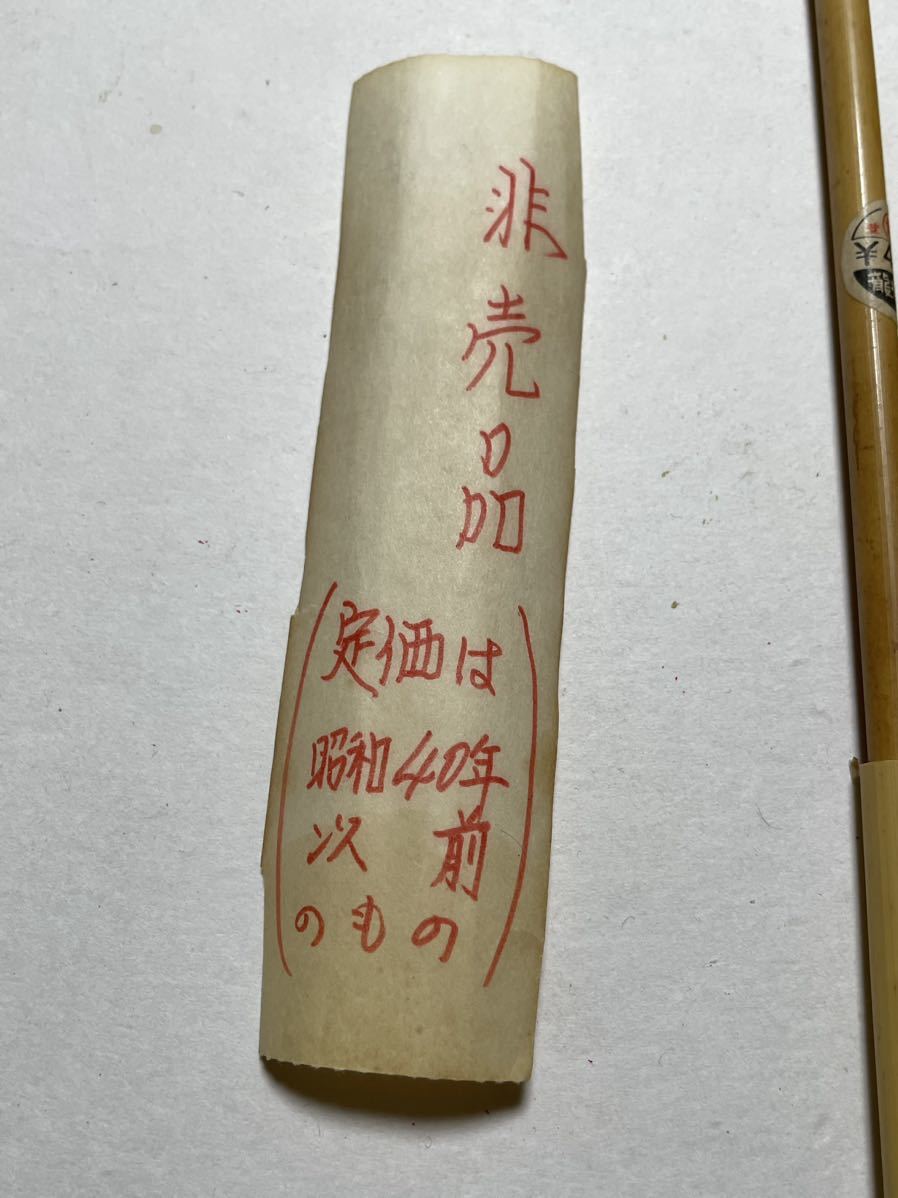 非売品
(定価は
昭和40年
以前
のもの)
夫
龍